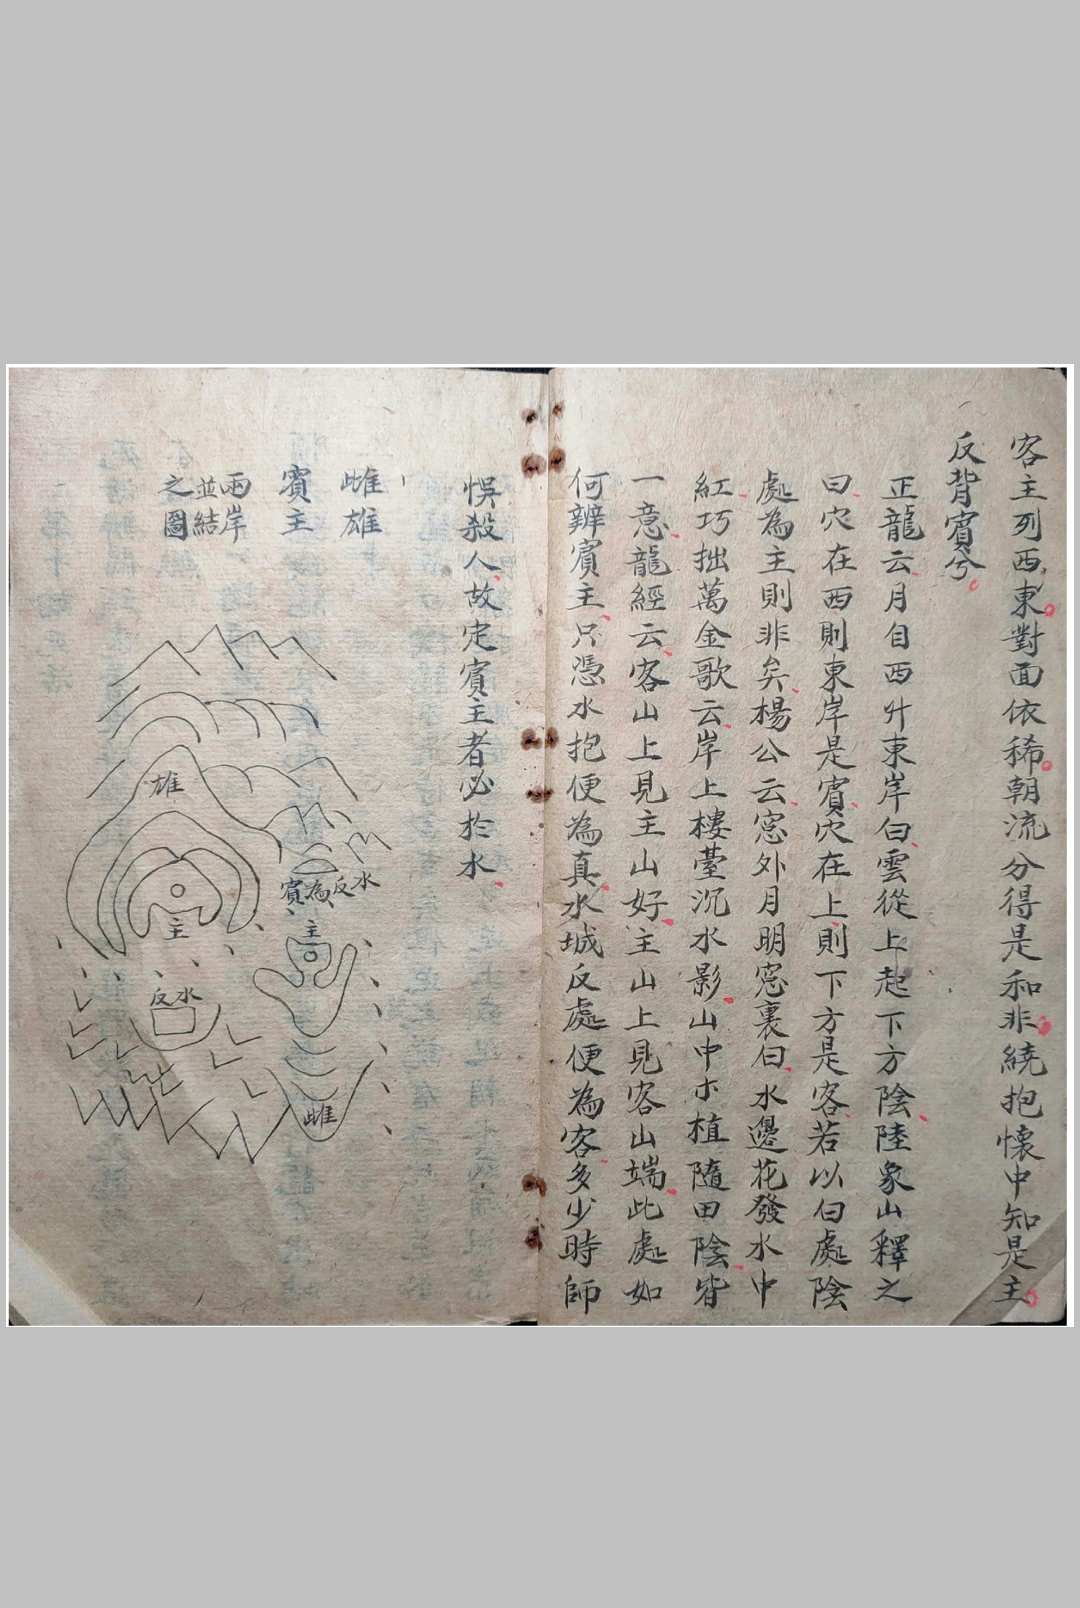 客主列西東對面依稀朝流分得是和非繞抱懷中知是主
反背賓兮
正龍云月自西升東岸白雲從上起下方陰陸象山釋之
曰穴在西則東岸是賓穴在上則下方是客若以白處陰
處為主則非矣楊公云窓外月明窓裏白水邊花發水中
紅巧拙萬金歌云岸上樓臺沉水影山中木植隨田陰皆
一意龍經云客山上見主山好主山上見客山端此處如
何辨賓主只憑水抱便為真水城反處便為客多少時師
悞殺人故定賓主者必於水
雌雄
賓主
兩岸
並結
之圖
雄
主
反水
賓為反水
主
雌